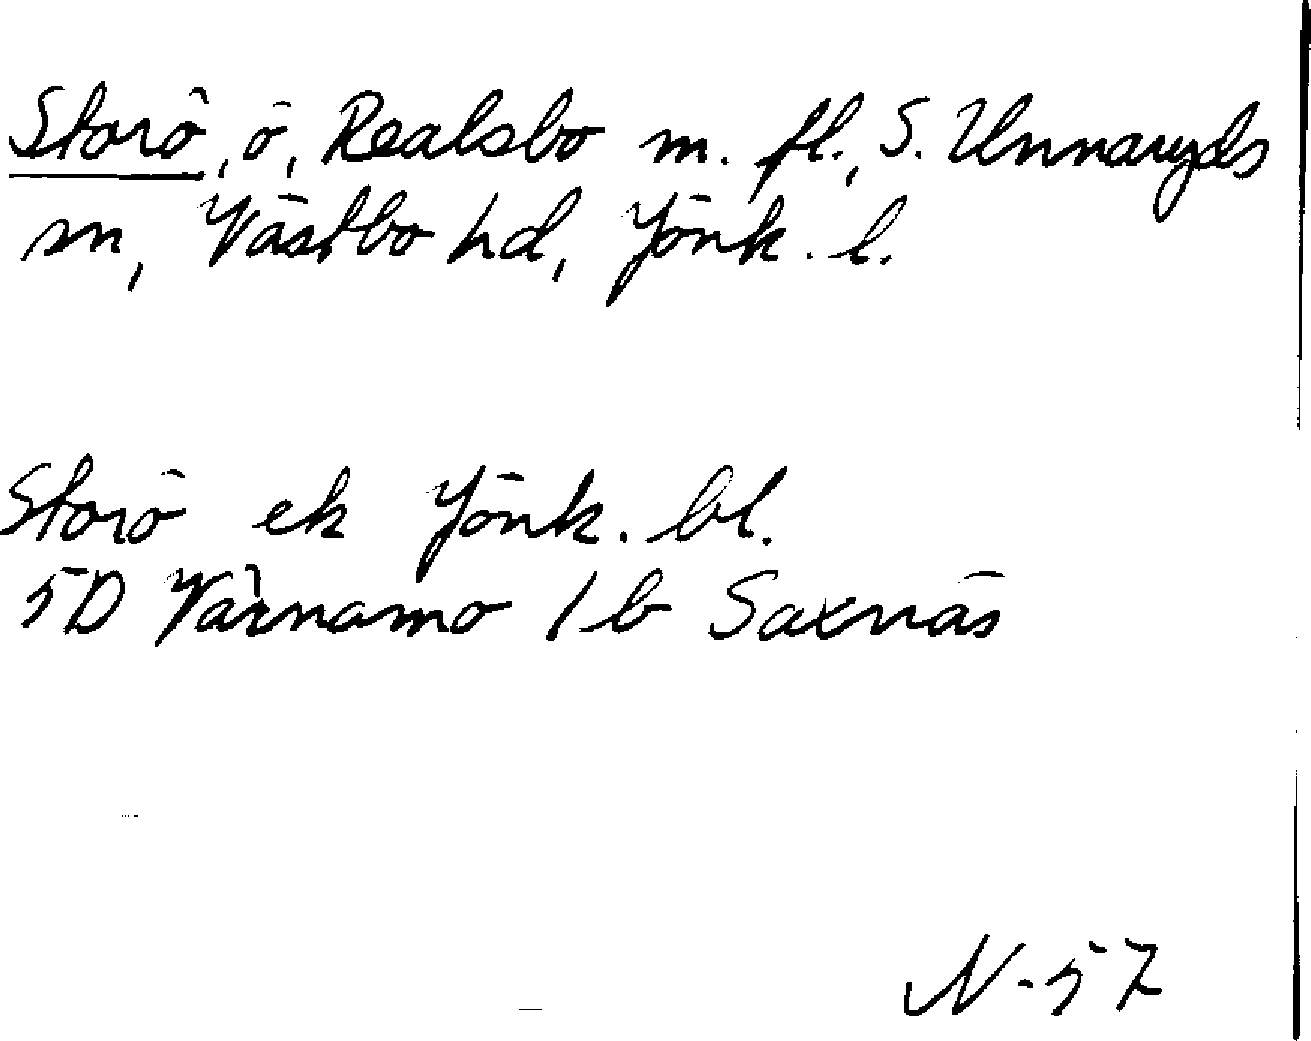 Storö, ö, Realsbo m. fl., S. Unnaryds
sn, Västbo hd, Jönk. l.
Storö ek Jönk. bl.
5D Värnamo 1b Saxnäs
N-57